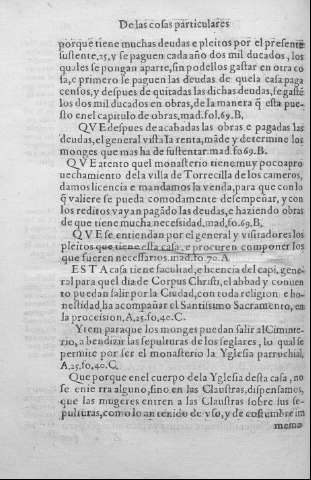 De las cosas particulares
porque tiene muchas deudas e pleitos por el presente
sustente, 25, y se paguen cada año dos mil ducados, los
quales se pongan aparte, sin podellos gastar en otra co
sa, e primero se paguen las deudas de quela casa paga
censos, y despues de quitadas las dichas deudas, se gastẽ
los dos mil ducados en obras, de la manera q̃ esta pue-
sto en el capitulo de obras, mad. fol. 69. B,
QVE despues de acabadas las obras e pagadas las
deudas, el general vista la renta, mãde y determine los
monges que mas ha de sustentar. mad. fo 69. B.
QVE atento quel monasterio tiene muy poco apro
uechamiento dela villa de Torrecilla de los cameros,
damos licencia e mandamos la venda, para que con lo
q̃ valiere se pueda comodamente desempeñar, y con
los reditos vayan pagãdo las deudas, e haziendo obras
de que tiene mucha necessidad, mad, fo, 69, B,
QVE se entiendan por el general y visitadores los
pleitos que tiene esta casa, e procuren componer los
que fueren necessarios. mad. fo. 70. A
ESTA casa tiene facultad, e licencia del capi, gene-
ral para quel dia de Corpus Christi, el abbad y conuen
to puedan salir por la Ciudad, con toda religion e ho-
nestidad, ha acompañar el Santissimo Sacramento, en
la procession, A, 25. fo, 40. C.
Ytem para que los monges puedan salir al Ciminte-
rio, a bendizir las sepulturas de los seglares, lo qual se
permite por ser el monasterio la Yglesia parrochial,
A, 25, fo, 40. C.
Que porque en el cuerpo dela Yglesia desta casa, no
se entierra alguno, sino en las Claustras, dispensamos,
que las mugeres entren a las Claustras sobre sus se-
pulturas, como lo an tenido de vso, y de costumbre im
memo